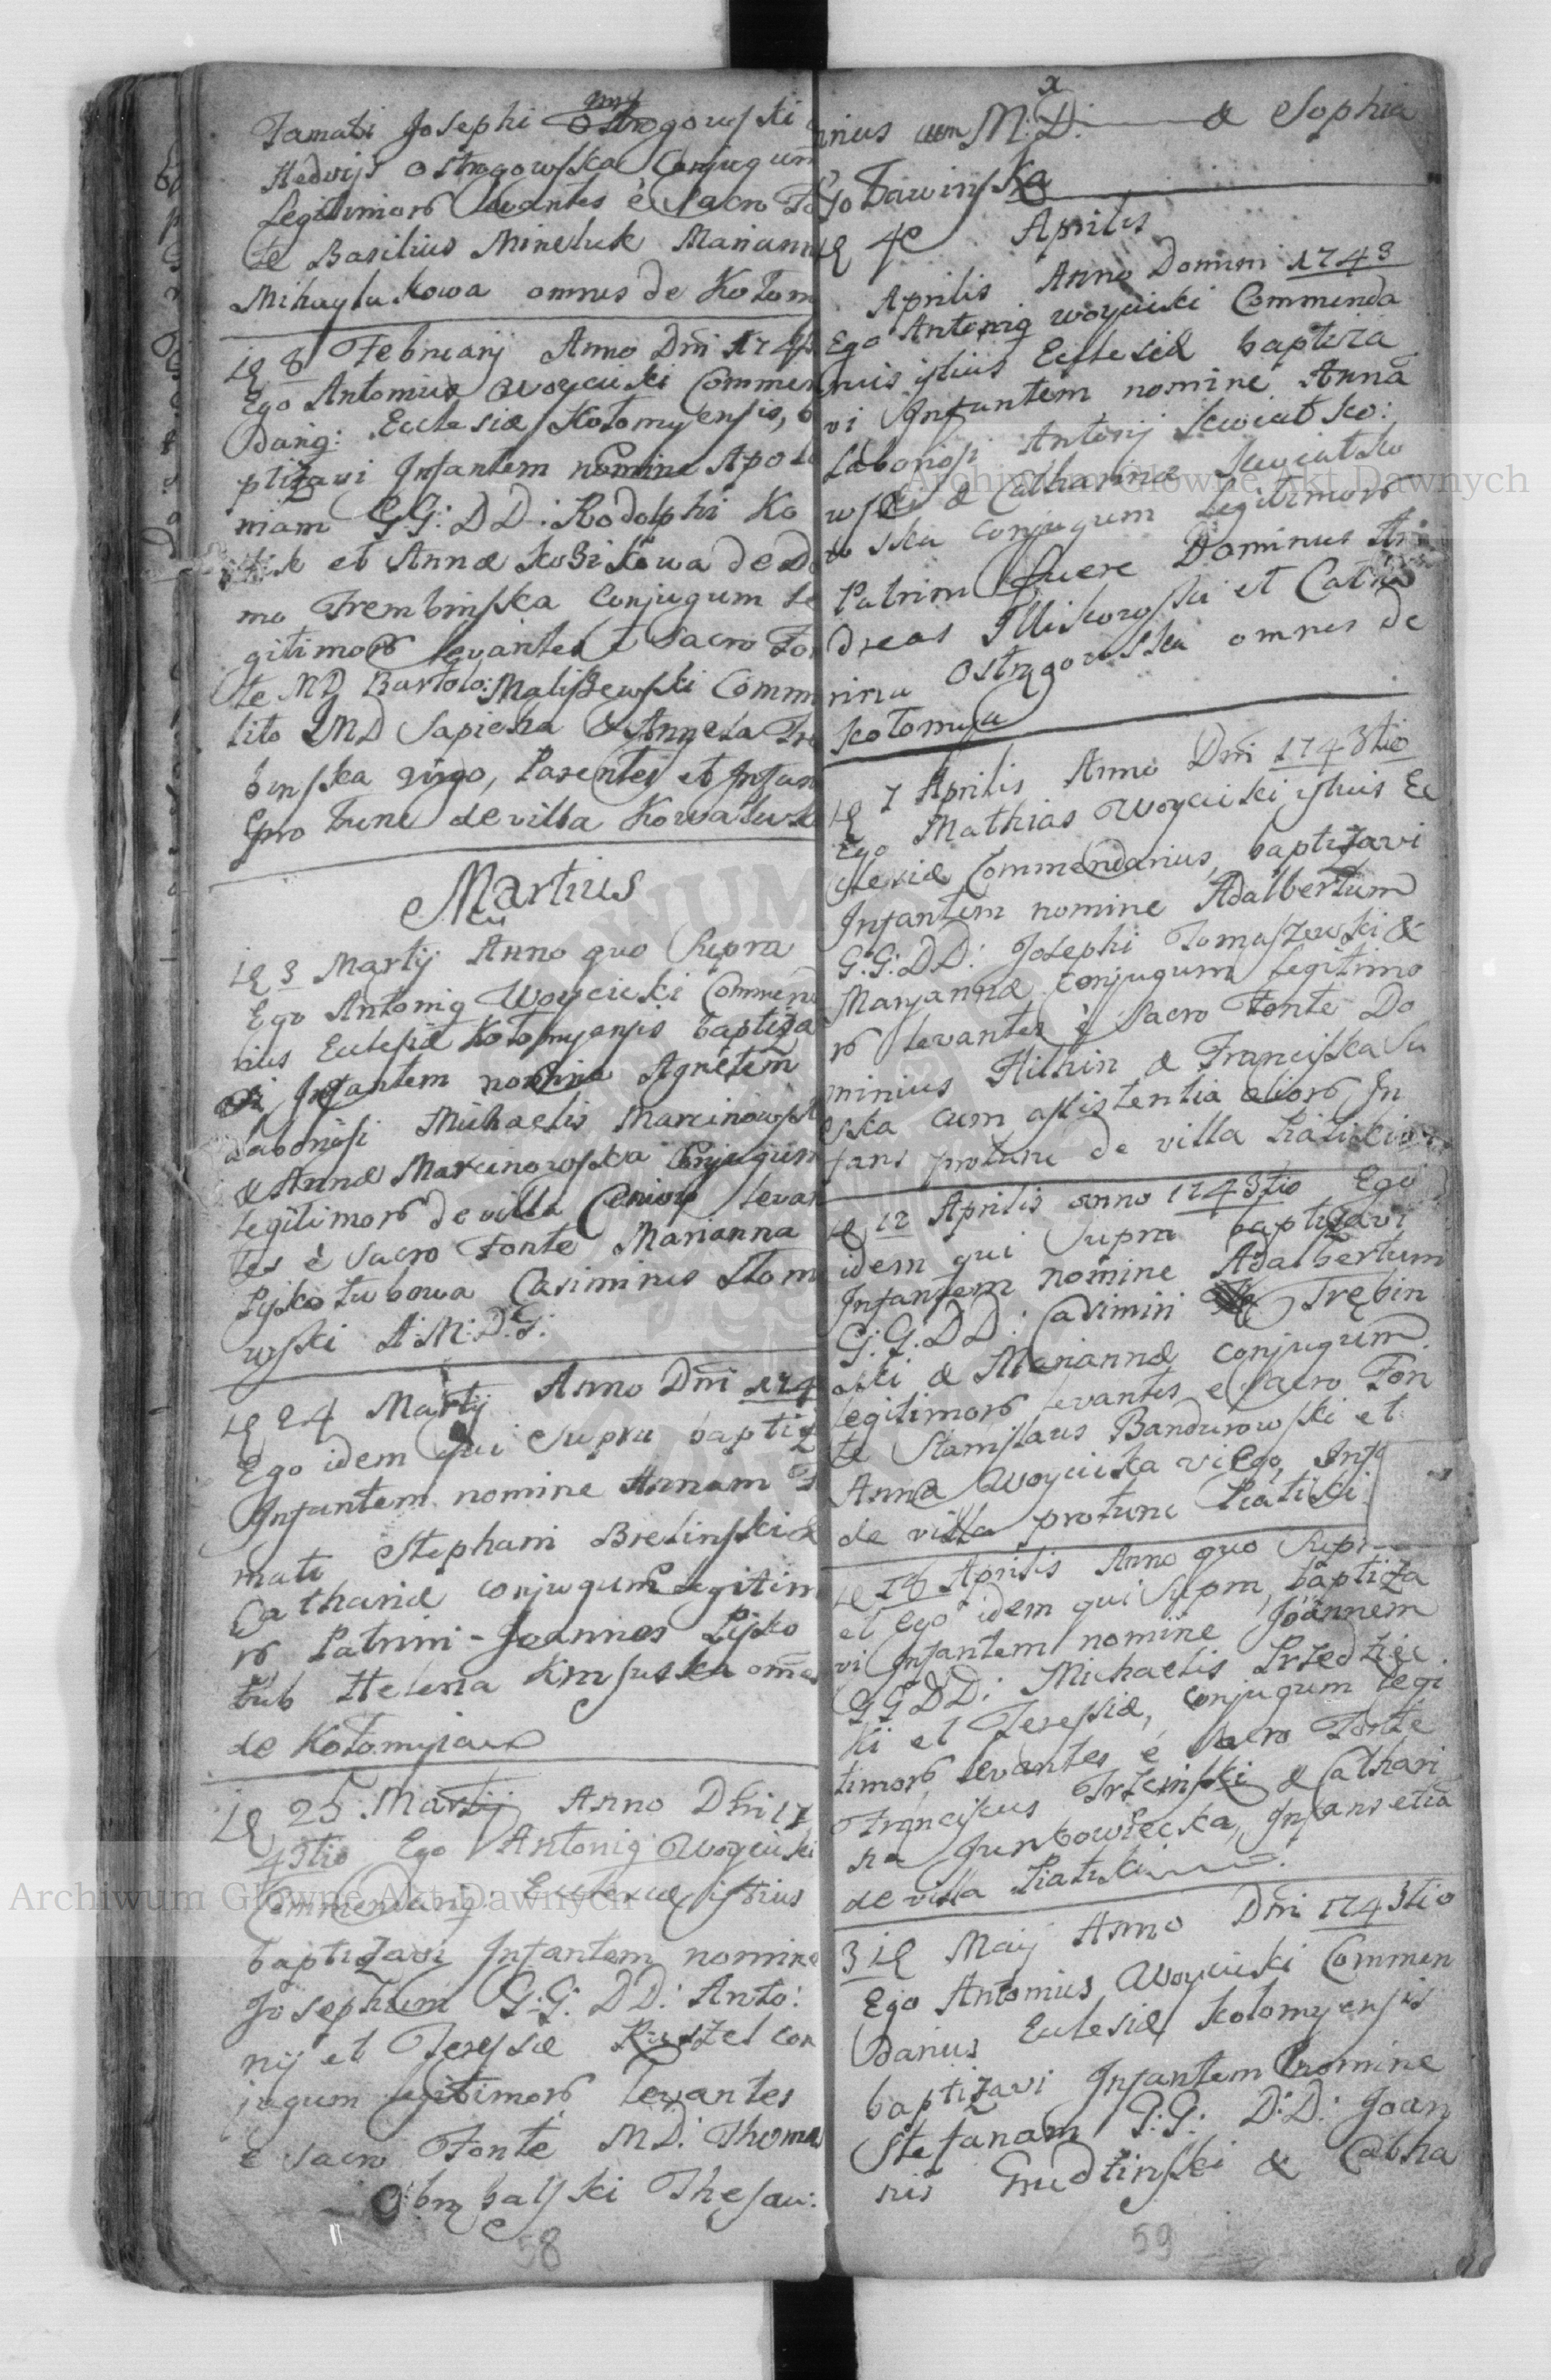 Famati Josephi Ostrogowski
Hedvigs Ostragowska Conjugum
Legitimor levantes è Sacro Fo
te Basilius Mineluk Mariann
Mihaylukowa omnes de Kołom
8 February Anno Dni 174
Ego Antonius Woycicki Commen
darig: Ecclesiæ Kołomyensis, b
ptizavi Infantem nomine Apolo
niam G:G: DD: Rodolphi Ko
et Annæ Kozikowa de D
mo Trembinska Conjugum Le
gitimor levantes è Sacro Fon
te MD Bartolo: Maliszewski Comm
lito IMD Sapieha & Anyela Tre
binska virgo, Parentes et Infan
pro tunc de villa Kowaluwk
Martius
3 Martij Anno quo Supra
Ego Antonig Woycicki Commend
rius Ecclesiæ Kołomyensis baptiza
vi Infantem nomine Agnetem
Laboriosi Michaelis Marcinowsk
& Annæ Marcinowska Conjugum
legitimor de villa Ceniow levan
tes è Sacro Fonte Marianna
Pijkołubowa Casimirus Słom
wski A:M:D:G:
24 Martij Anno Dni 174
Ego idem qui Supra baptiz
Infantem nomine Annam F
mati Stephani Brelinski &
Catharinæ conjugum Legitim
or Patrini - Joannes Pijko
łub Helena Kmsuska omnes
de Kołomyia
25 Martij Anno Dni 17
43tio Ego Antonig Woycicki
Commendarig: Ecclesiæ istius
baptizavi Infantem nomine
Josephum G:G: DD: Anto:
nij et Teresiæ Ruszel con
jugum legitimor levantes
è Sacro Fonte MD: Thoma
balski Thesau:
58
rius cum M:D: & Sophia
Go Tawinska
4 Aprilis
Aprilis Anno Domini 1743
Ego Antonig Woycicki Commenda
rius istius Ecclesiæ baptiza
vi Infantem nomine Anna
Laboriosi Antonij Kwiatko:
wski & Catharinæ Kwiatko
wska conjugum Legitimor
Patrini fuere Dominus An
dreas Illikowski et Catha
rina Ostragowska omnes de
Kołomyia
7 Aprilis Anno Dni 1743tio
Ego Mathias Woycicki istius Ec
clesiæ Commendarius, baptizavi
Infantem nomine Adalbertum
G:G: DD: Josephi Tomaszewski &
Maryannæ conjugum legitimo
r levantes è Sacro Fonte Do
minius Hilhin & Francisca Su
ska cum assistentia alior In
fans protunc de villa Piatiski
12 Aprilis anno 1743tio Ego
idem qui Supra baptizavi
Infantem nomine Adalbertum
G:G. DD: Casimiri Trębin
ski & Mariannæ conjugum
legitimor levantes e Sacro Fon
te Stanislaus Bandurowski et
Anna Woycicka virgo, Inf
de villa protunc Piatiski
Aprilis Anno quo Supr
et Ego idem qui Supra, baptiza
vi Infantem nomine Joannem
GG DD: Michaelis Przedziec
ki et Teresiæ, conjugum legi
timor levantes è Sacro Fonte
Franciscus Trzcinski & Cathari
na Junkowiecka, Infans etia
de villa Piatiski
3 Maij Anno Dni 1743tio
Ego Antonius Woycicki Commen
darius Ecclesiæ Kołomyensis
baptizavi Infantem nomine
Stefanam G:G: D:D: Joan
nis Grudzinski & Catha
59
Archiwum Główne Akt Dawnych
Archiwum Główne Akt Dawnych